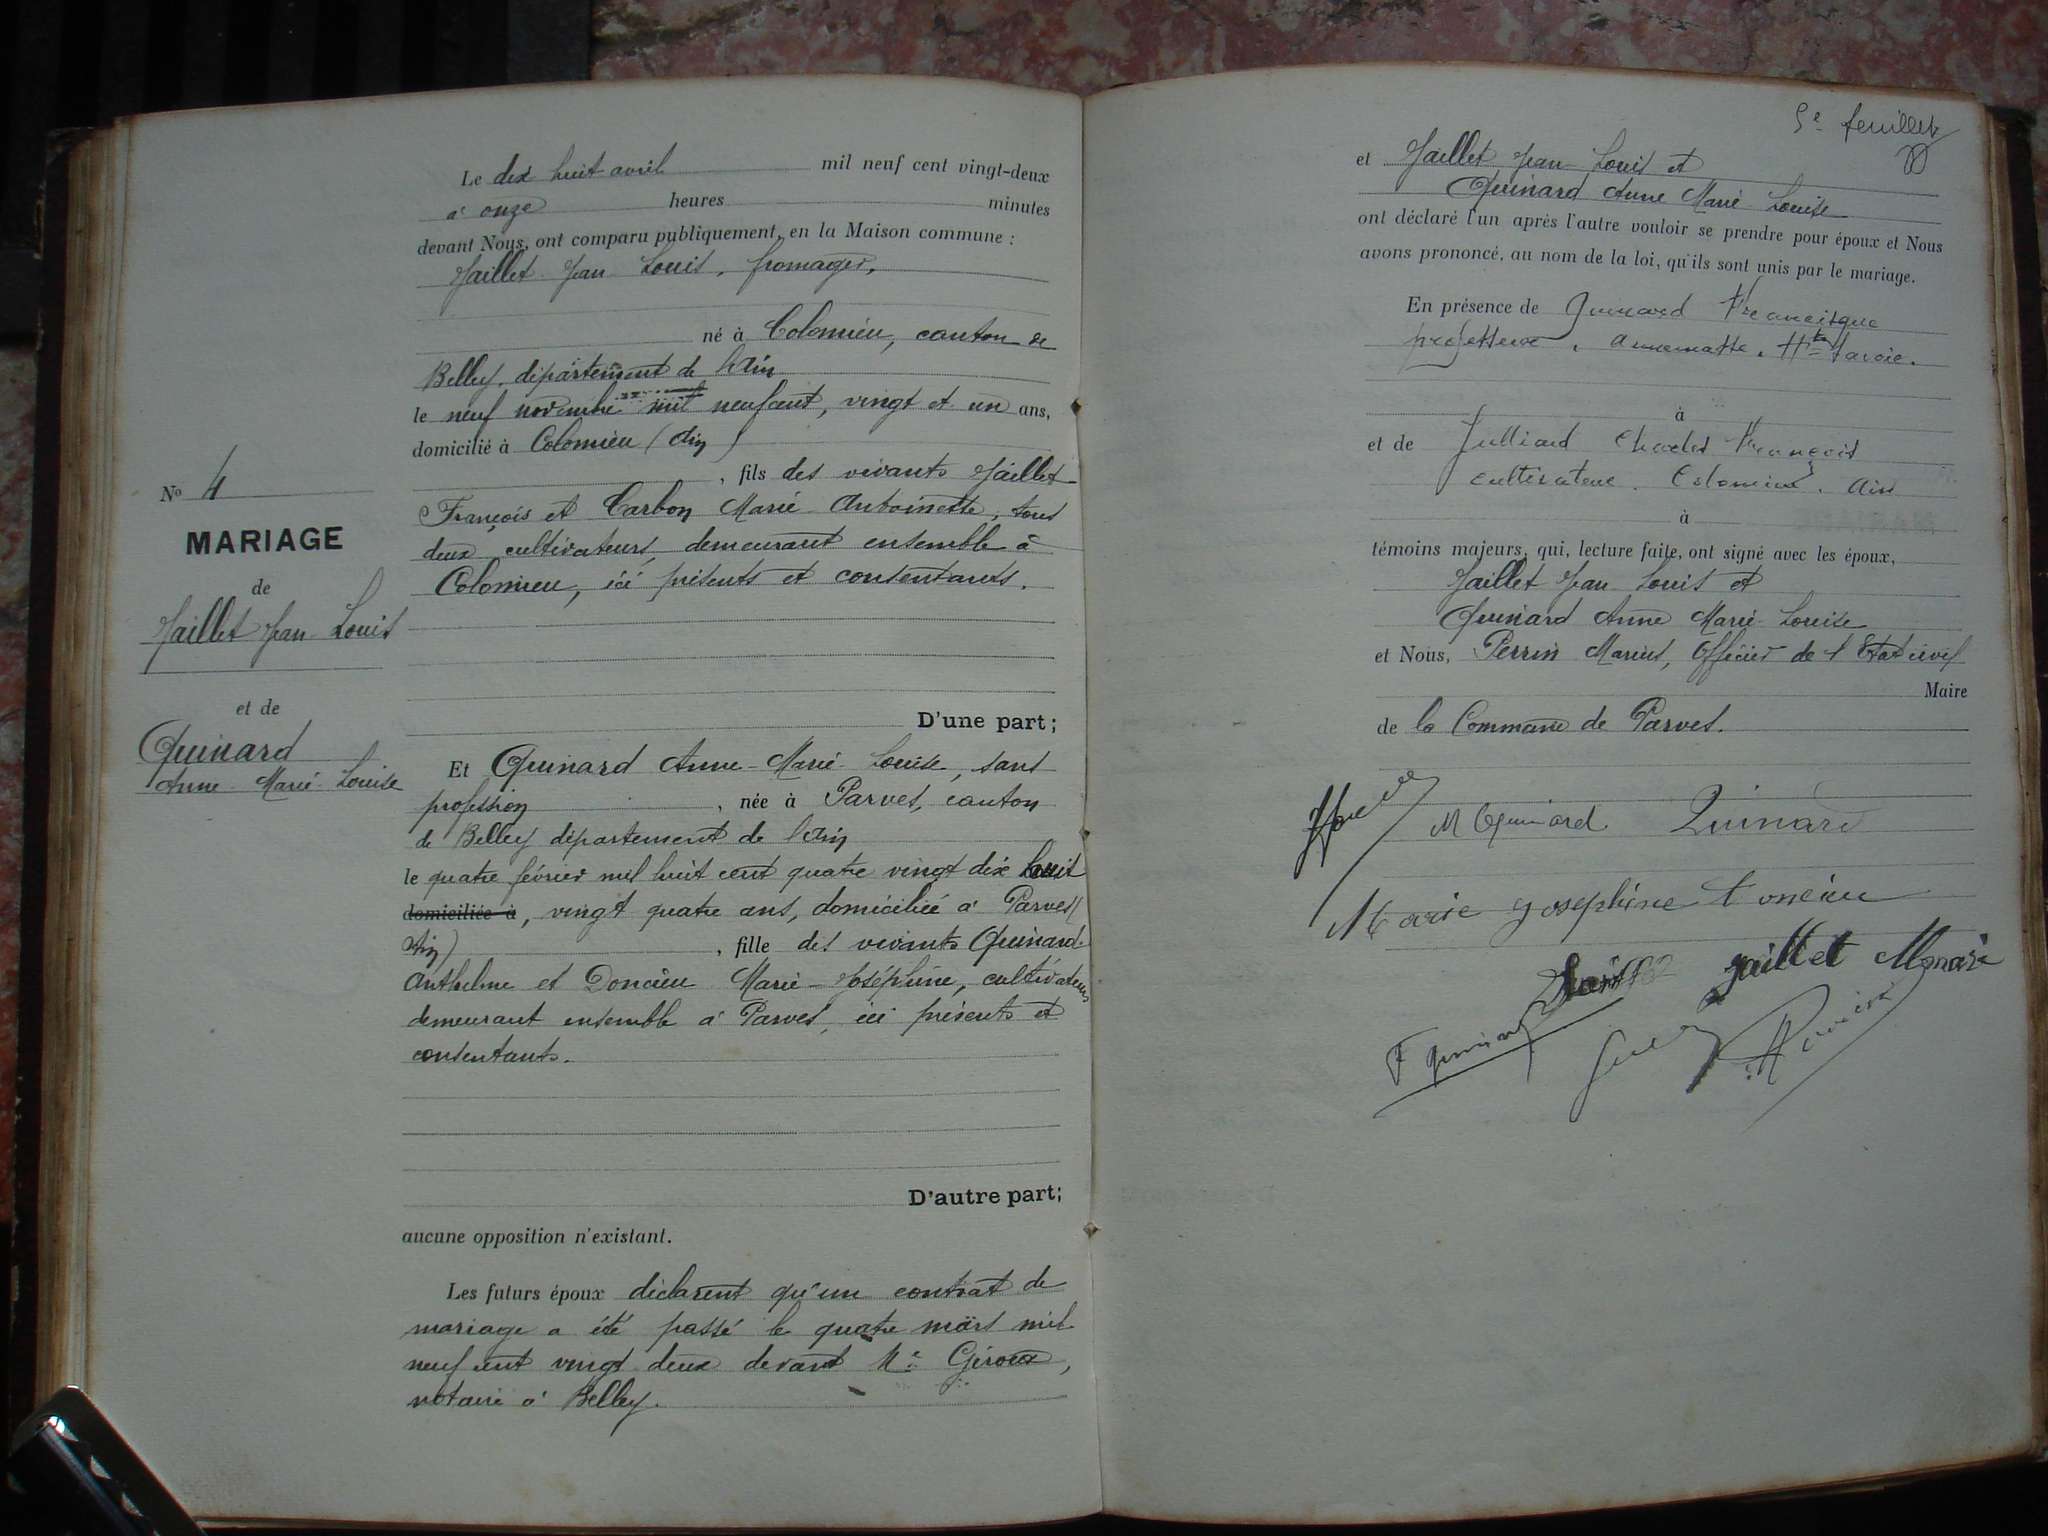 Le dix huit avril mil neuf cent vingt-deux
à onze heures minutes
devant Nous, ont comparu publiquement, en la Maison commune :
Jaillet Jean Louis, fromager,
né à Colomieu, canton de
Belley, département de l'Ain
le neuf novembre mil neuf cent, vingt et un ans,
domicilié à Colomieu (Ain)
, fils des vivants Jaillet
François et Carbon Marie Antoinette, tous
deux cultivateurs, demeurant ensemble à
Colomieu, ici présents et consentants.
D'une part;
Et Quinard Anne-Marie-Louise, sans
profession, née à Parves, canton
de Belley département de l'Ain
le quatre février mil huit cent quatre vingt dix huit
domiciliée à, vingt quatre ans, domiciliée à Parves (
Ain), fille des vivants Quinard
Anthelme et Doncieu Marie-Joséphine, cultivateurs
demeurant ensemble à Parves, ici présents et
consentants.
D'autre part;
aucune opposition n'existant.
Les futurs époux déclarent qu'un contrat de
mariage a été passé le quatre mars mil
neuf cent vingt deux devant Me Giroux,
notaire à Belley.
No 4
MARIAGE
de
Jaillet Jean Louis
et de
Quinard
Anne-Marie-Louise
5e feuillet
et Jaillet Jean-Louis et
Quinard Anne Marie-Louise
ont déclaré l'un après l'autre vouloir se prendre pour époux et Nous
avons prononcé, au nom de la loi, qu'ils sont unis par le mariage.
En présence de Quinard Francisque
professeur, Annemasse, Hte Savoie.
à
et de Julliard Charles François
cultivateur, Colomieu, Ain
à
témoins majeurs, qui, lecture faite, ont signé avec les époux,
Jaillet Jean Louis et
Quinard Anne Marie-Louise
et Nous, Perrin Marius, Officier de l'Etat civil
Maire
de la Commune de Parves.
M Quinard Quinard
Marie Josephine Doncieu
Jaillet
F Quinard